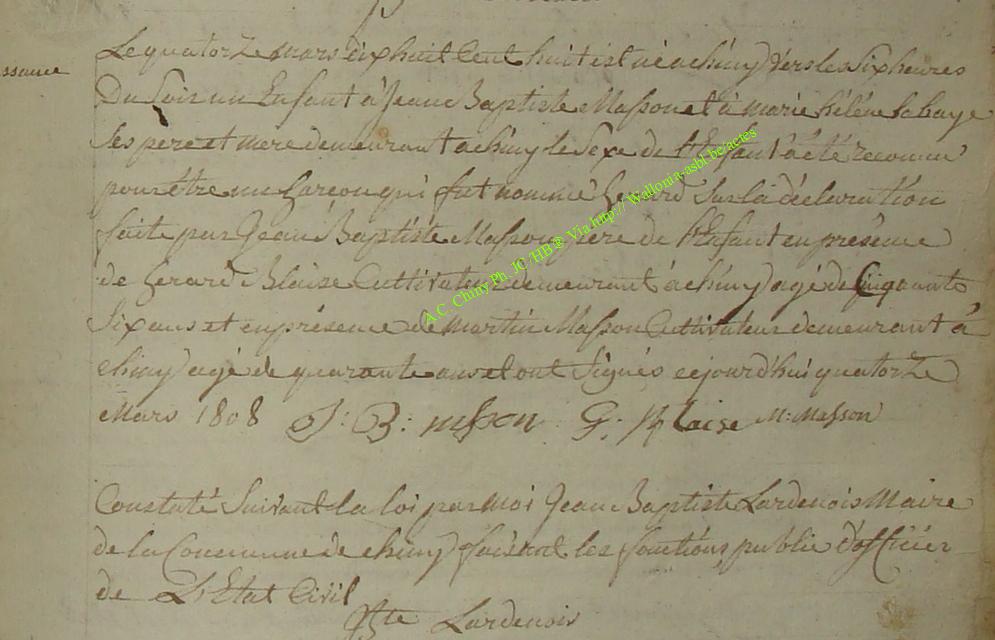 ssance
Le quatorze mars dix huit cent huit est né a chiny vers les six heures
du soir un Enfant à Jean Baptiste Masson et à marie hélène
ses pere et mere demeurant a chiny le sexe de l'Enfant a été reconnu
pour être un garcon qui fut nommé Gerard sur la déclaration
faite par Jean Baptiste Masson père de l'Enfant en présence
de Gerard Blaise Cultivateur demeurant a chiny agé de Cinquante
Six ans et en présence de martin Masson Cultivateur demeurant à
chiny agé de quarante ans et ont Signés cejourd'hui quatorze
Mars 1808 J: B: masson G: Blaise M: Masson
Constaté Suivant la loi par moi Jean Baptiste Lardenois Maire
de la Commune de chiny faisant les fonctions public d'officier
de L'Etat Civil
Lardenois
A.C. Chiny Ph. JC /HB® Via http:// Wallonia-asbl.be/actes